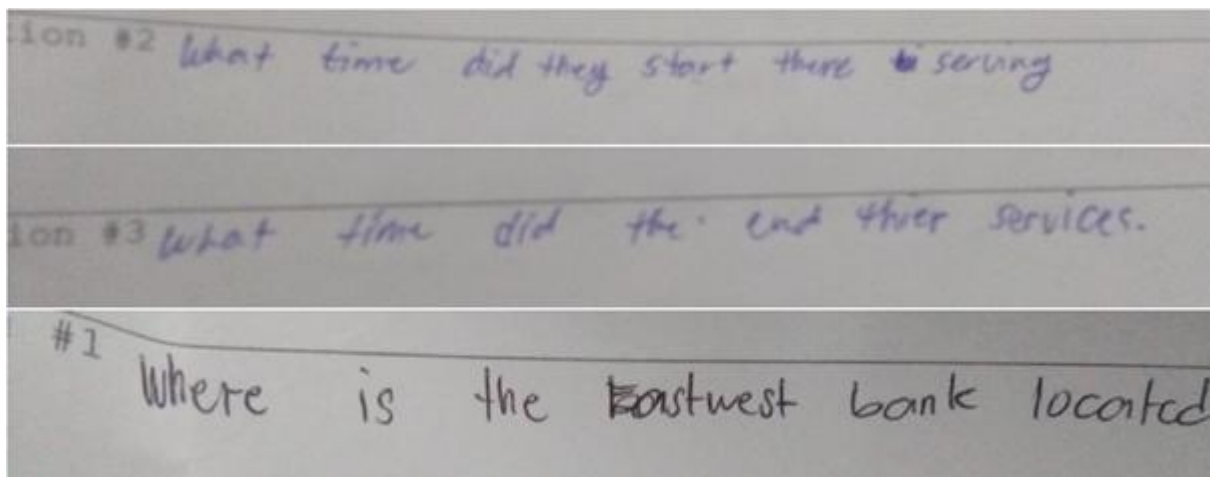 ion #2 What time did they start there serving
ion #3 What time did the end thier services.
#1 Where is the Eastwest bank located